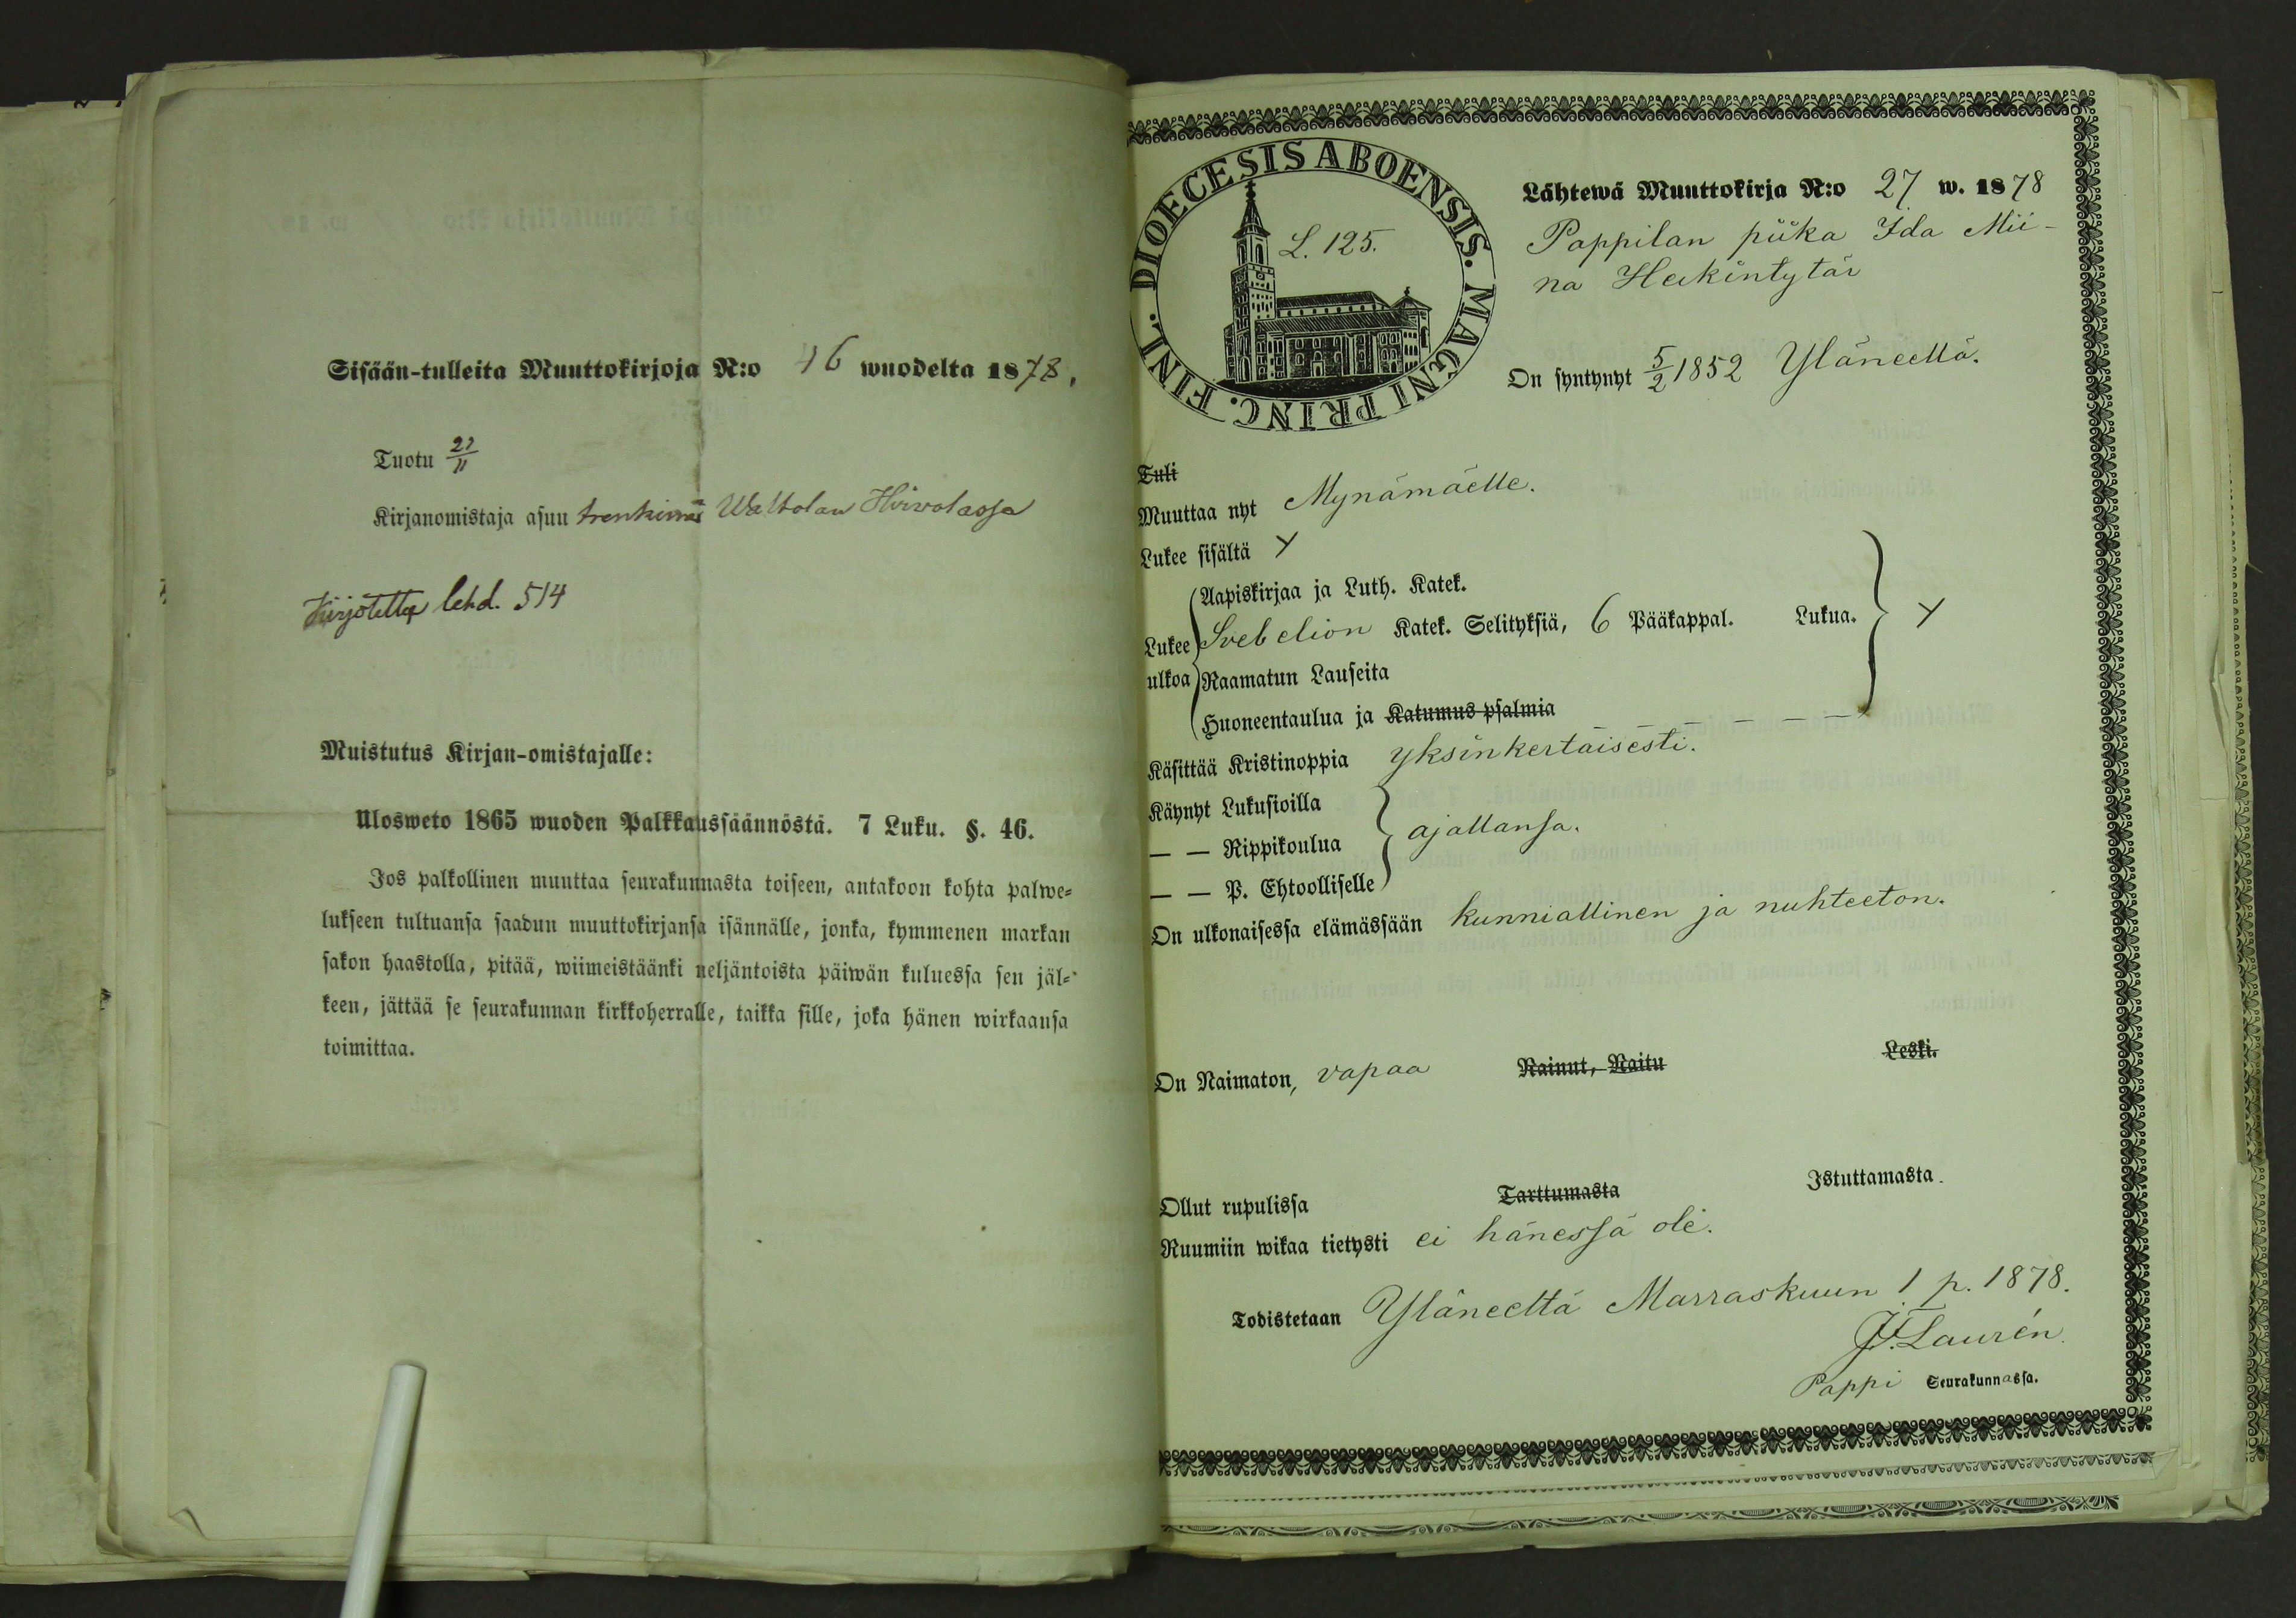 Sisään-tulleita Muuttokirjoja N:o 46 wuodelta 1878.
Tuotu 21/11
Kirjanomistaja asuu trenkinä Waltolan Hirvolassa
Kirjotettu lehd. 514
Muistutus Kirjan-omistajalle:
Ulosweto 1865 wuoden Palkkaussäännöstä. 7 Luku. §. 46.
Jos palkollinen muuttaa seurakunnasta toiseen, antakoon kohta palwe=
lukseen tultuansa saadun muuttokirjansa isännälle, jonka, kymmenen markan
sakon haastolla, pitää, wiimeistäänki neljäntoista päiwän kuluessa sen jäl=
keen, jättää se seurakunnan kirkkoherralle, taikka sille, joka hänen wirkaansa
toimittaa.
DIOECESIS ABOENSIS. MAGNI PRINC. FINL.
L. 125.
Lähtewä Muuttokirja N:o 27 w. 1878
Pappilan piika Ida Mii-
na Heikintytär
On syntynyt 5/2 1852 Yläneellä.
Tuli
Muuttaa nyt Mynämäelle.
Lukee sisältä Y
Aapiskirjaa ja Luth. Katek.
Lukee Svebelion Katek. Selityksiä, 6 Pääkappal. Lukua. Y
ulkoa Raamatun Lauseita
Huoneentaulua ja Katumus-psalmia
Käsittää Kristinoppia yksinkertaisesti.
Käynyt Lukusioilla
— — Rippikoulua ajallansa.
— — P. Ehtoolliselle
On ulkonaisessa elämässään kunniallinen ja nuhteeton.
On Naimaton, vapaa Nainut, Naitu Leski.
Ollut rupulissa Tarttumasta Istuttamasta.
Ruumiin wikaa tietysti ei hänessä ole.
Todistetaan Yläneeltä Marraskuun 1 p. 1878.
J. Laurén.
Pappi Seurakunnassa.